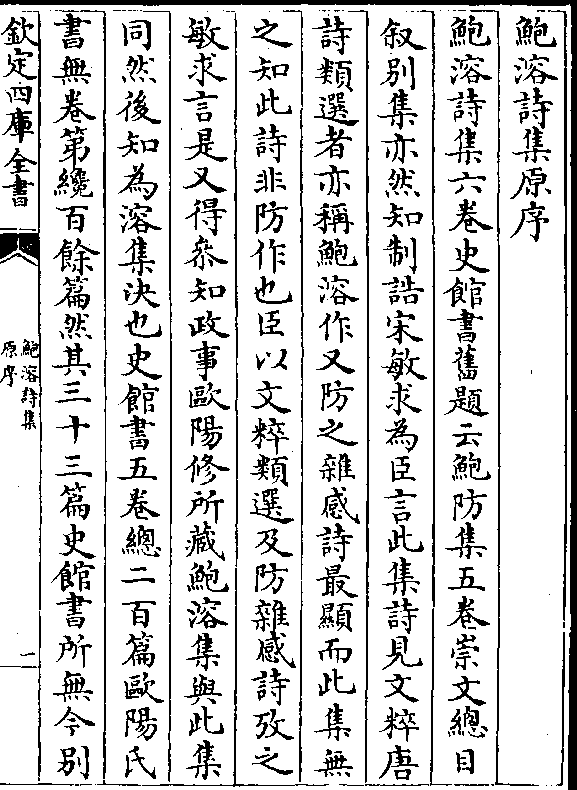 鮑溶詩集原序
鮑溶詩集六卷史館書舊題云鮑防集五卷崇文總目
叙别集亦然知制誥宋敏求為臣言此集詩見文粹唐
詩類選者亦稱鮑溶作又防之雜感詩最顯而此集無
之知此詩非防作也臣以文粹類選及防雜感詩攷之
敏求言是又得叅知政事歐陽修所藏鮑溶集與此集
同然後知為溶集決也史館書五卷總二百篇歐陽氏
書無卷第纔百餘篇然其三十三篇史館書所無今别
欽定四庫全書
鮑溶詩集
原序
一